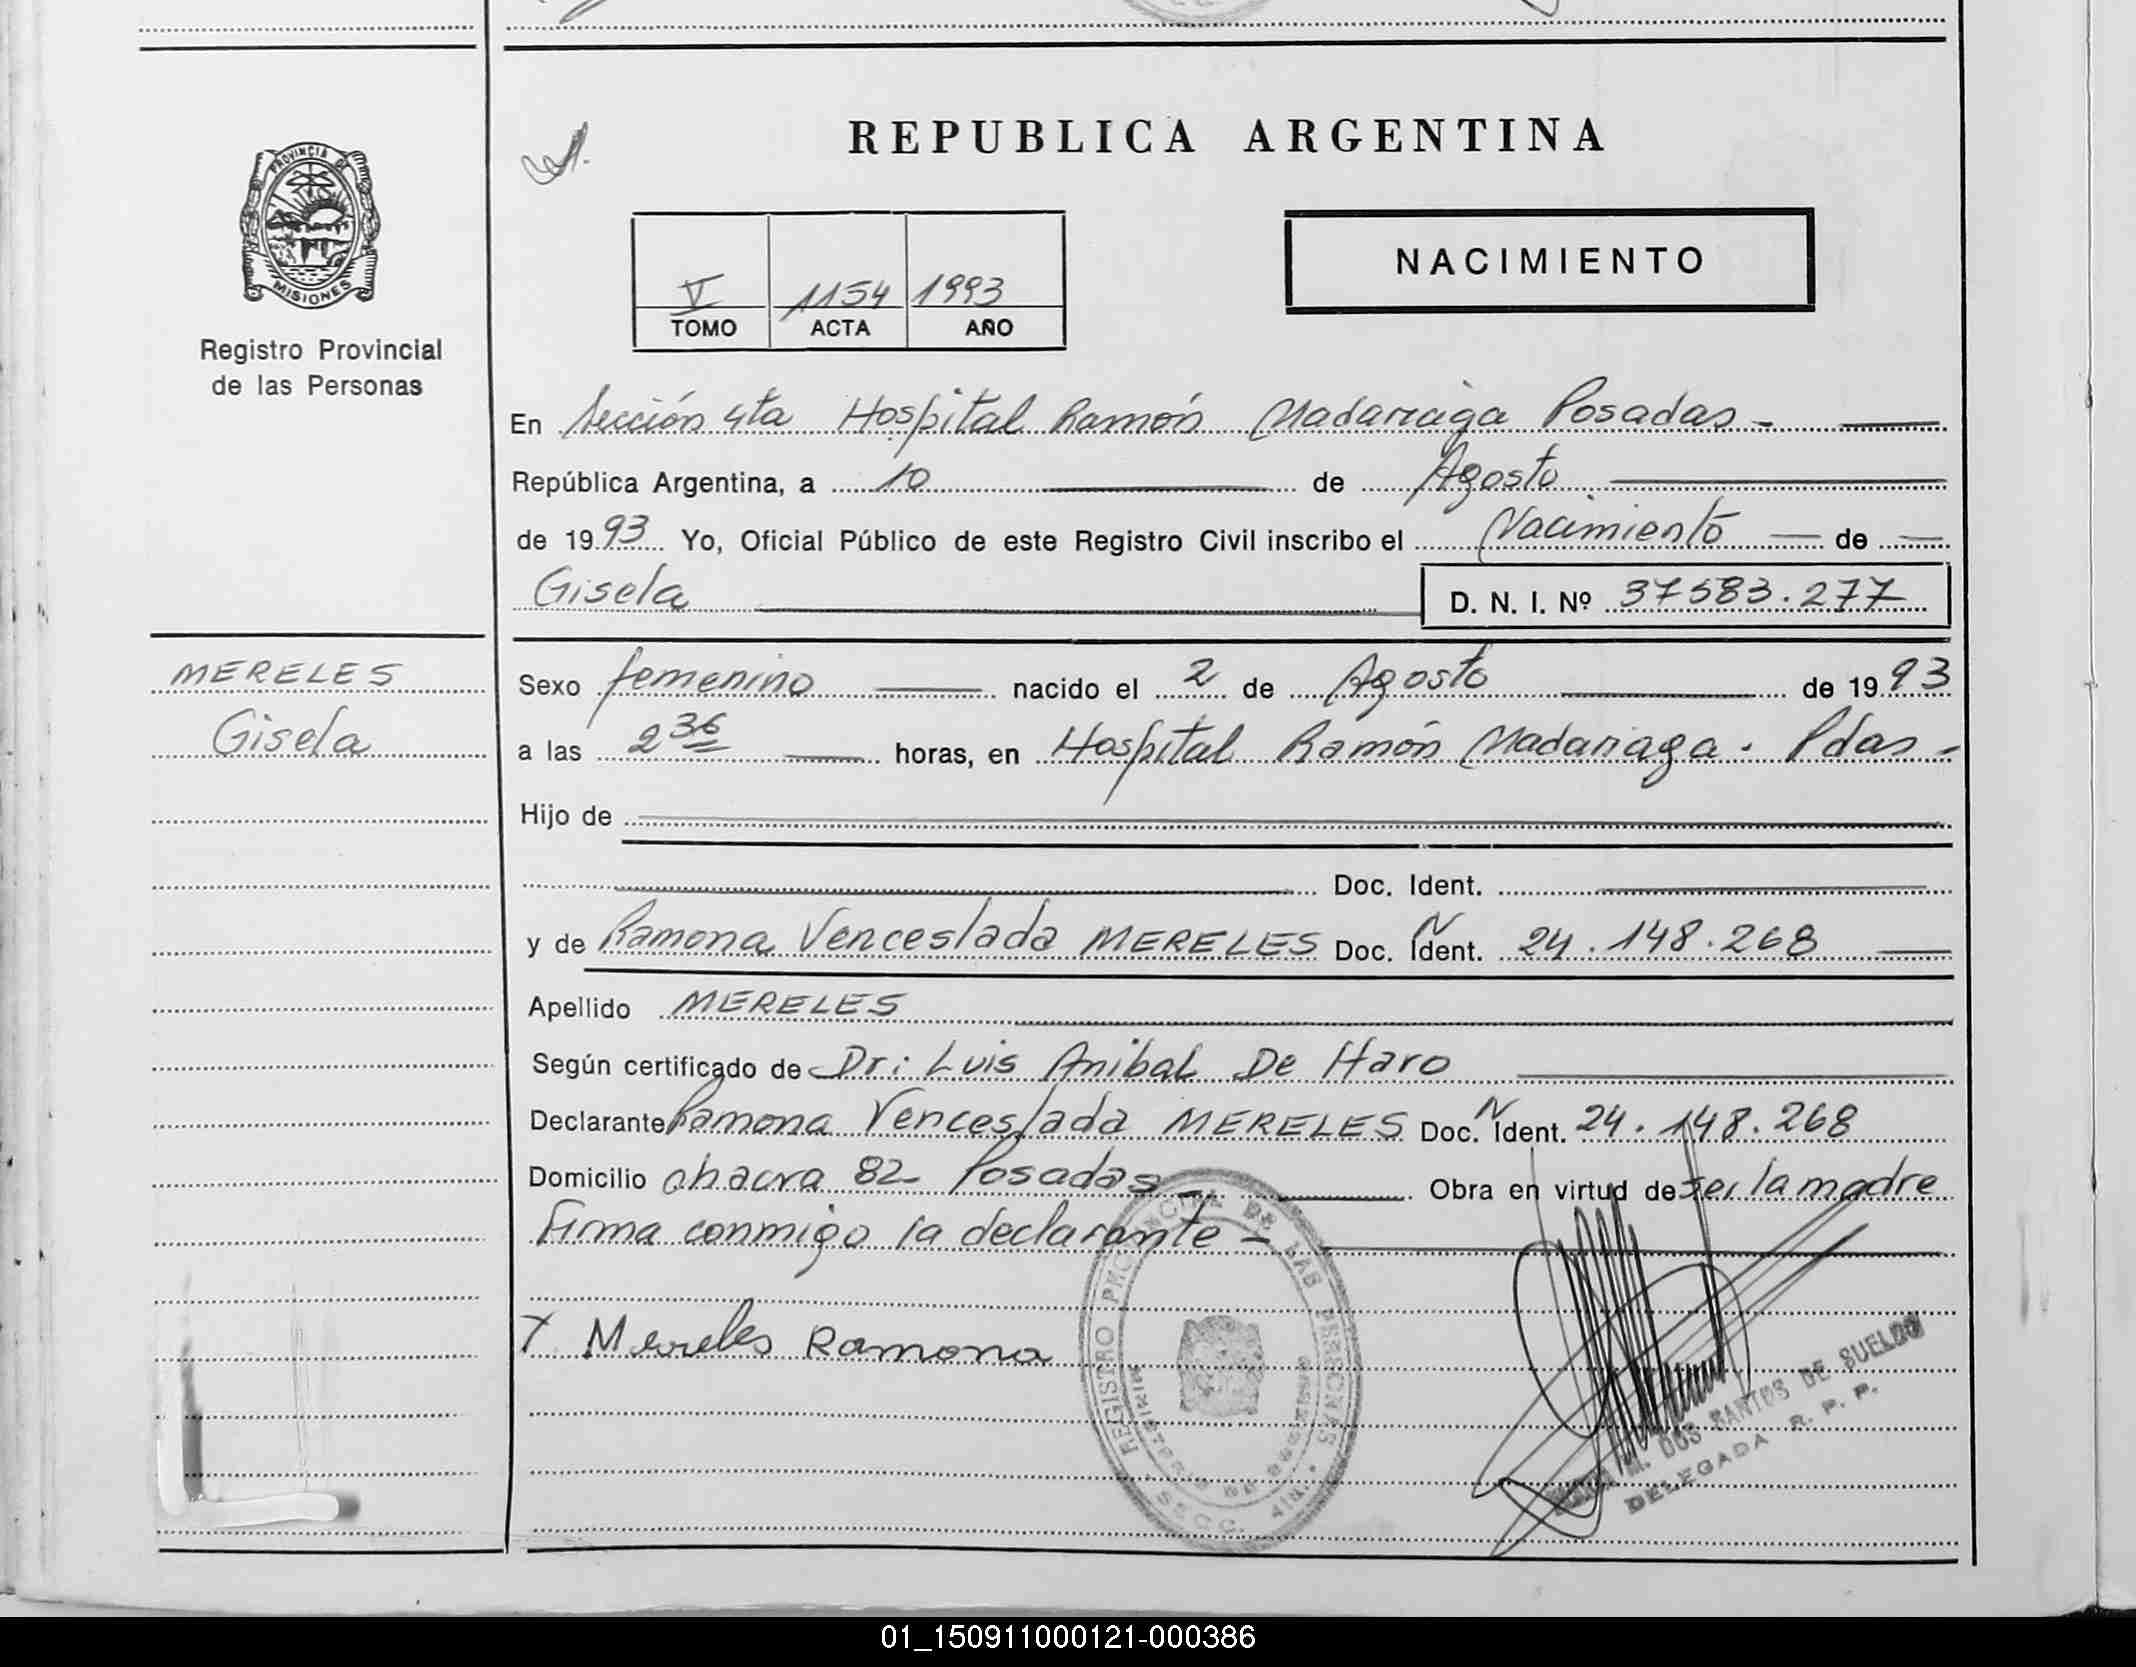 PROVINCIA DE
MISIONES
Registro Provincial
de las Personas
MERELES
Gisela
REPUBLICA ARGENTINA
NACIMIENTO
V 1154 1993
TOMO ACTA AÑO
En Sección 4ta Hospital Ramón Madariaga Posadas -
República Argentina, a 10 de Agosto
de 1993 Yo, Oficial Público de este Registro Civil inscribo el Nacimiento de
Gisela D. N. I. Nº 37583.277
Sexo femenino nacido el 2 de Agosto de 1993
a las 2 36 horas, en Hospital Ramón Madariaga. Pdas -
Hijo de
Doc. Ident.
y de Ramona Venceslada MERELES Doc. N Ident. 24.148.268
Apellido MERELES
Según certificado de Dr: Luis Anibal De Haro
Declarante Ramona Venceslada MERELES Doc. N Ident. 24.148.268
Domicilio chacra 82 Posadas - Obra en virtud de ser la madre
Firma conmigo la declarante -
x Mereles Ramona
REGISTRO PROVINCIAL DE LAS PERSONAS
SECC. 4ta
MINISTERIO DE GOBIERNO
M. DOS SANTOS DE SUELDO
DELEGADA R. P. P.
01_150911000121-000386